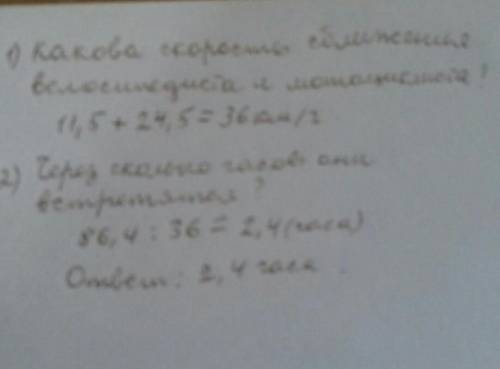 1) Какова скорость сближения
велосипедиста и мотоциклиста?
11,5 + 24,5 = 36 км/ч
2) Через сколько часов они
встретятся?
86,4 : 36 = 2,4 (часа)
Ответ: 2,4 часа.